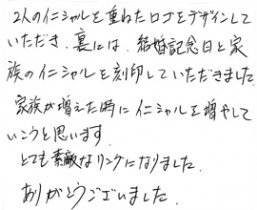 2人のイニシャルを重ねたロゴをデザインして
いただき、裏には、結婚記念日と家
族のイニシャルを刻印していただきました。
家族が増えた時にイニシャルを増やして
いこうと思います。
とても素敵なリングになりました。
ありがとうございました。